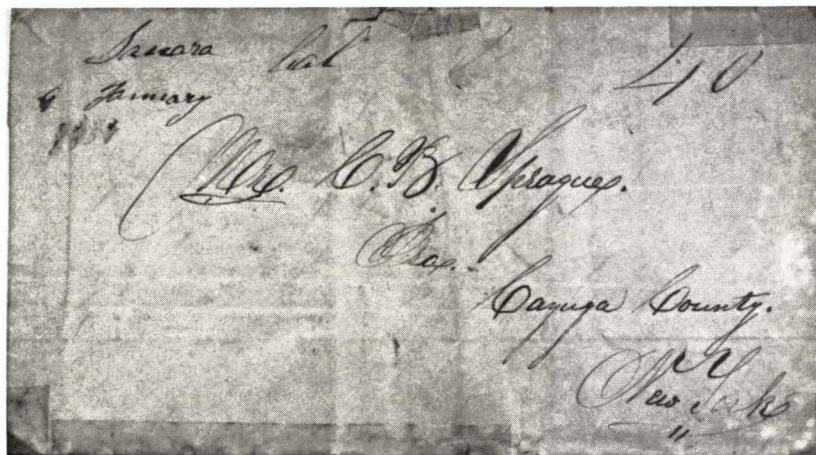 Sonora Cal 40
January
Mrs. C. B. Sprague.
Cayuga County.
New York